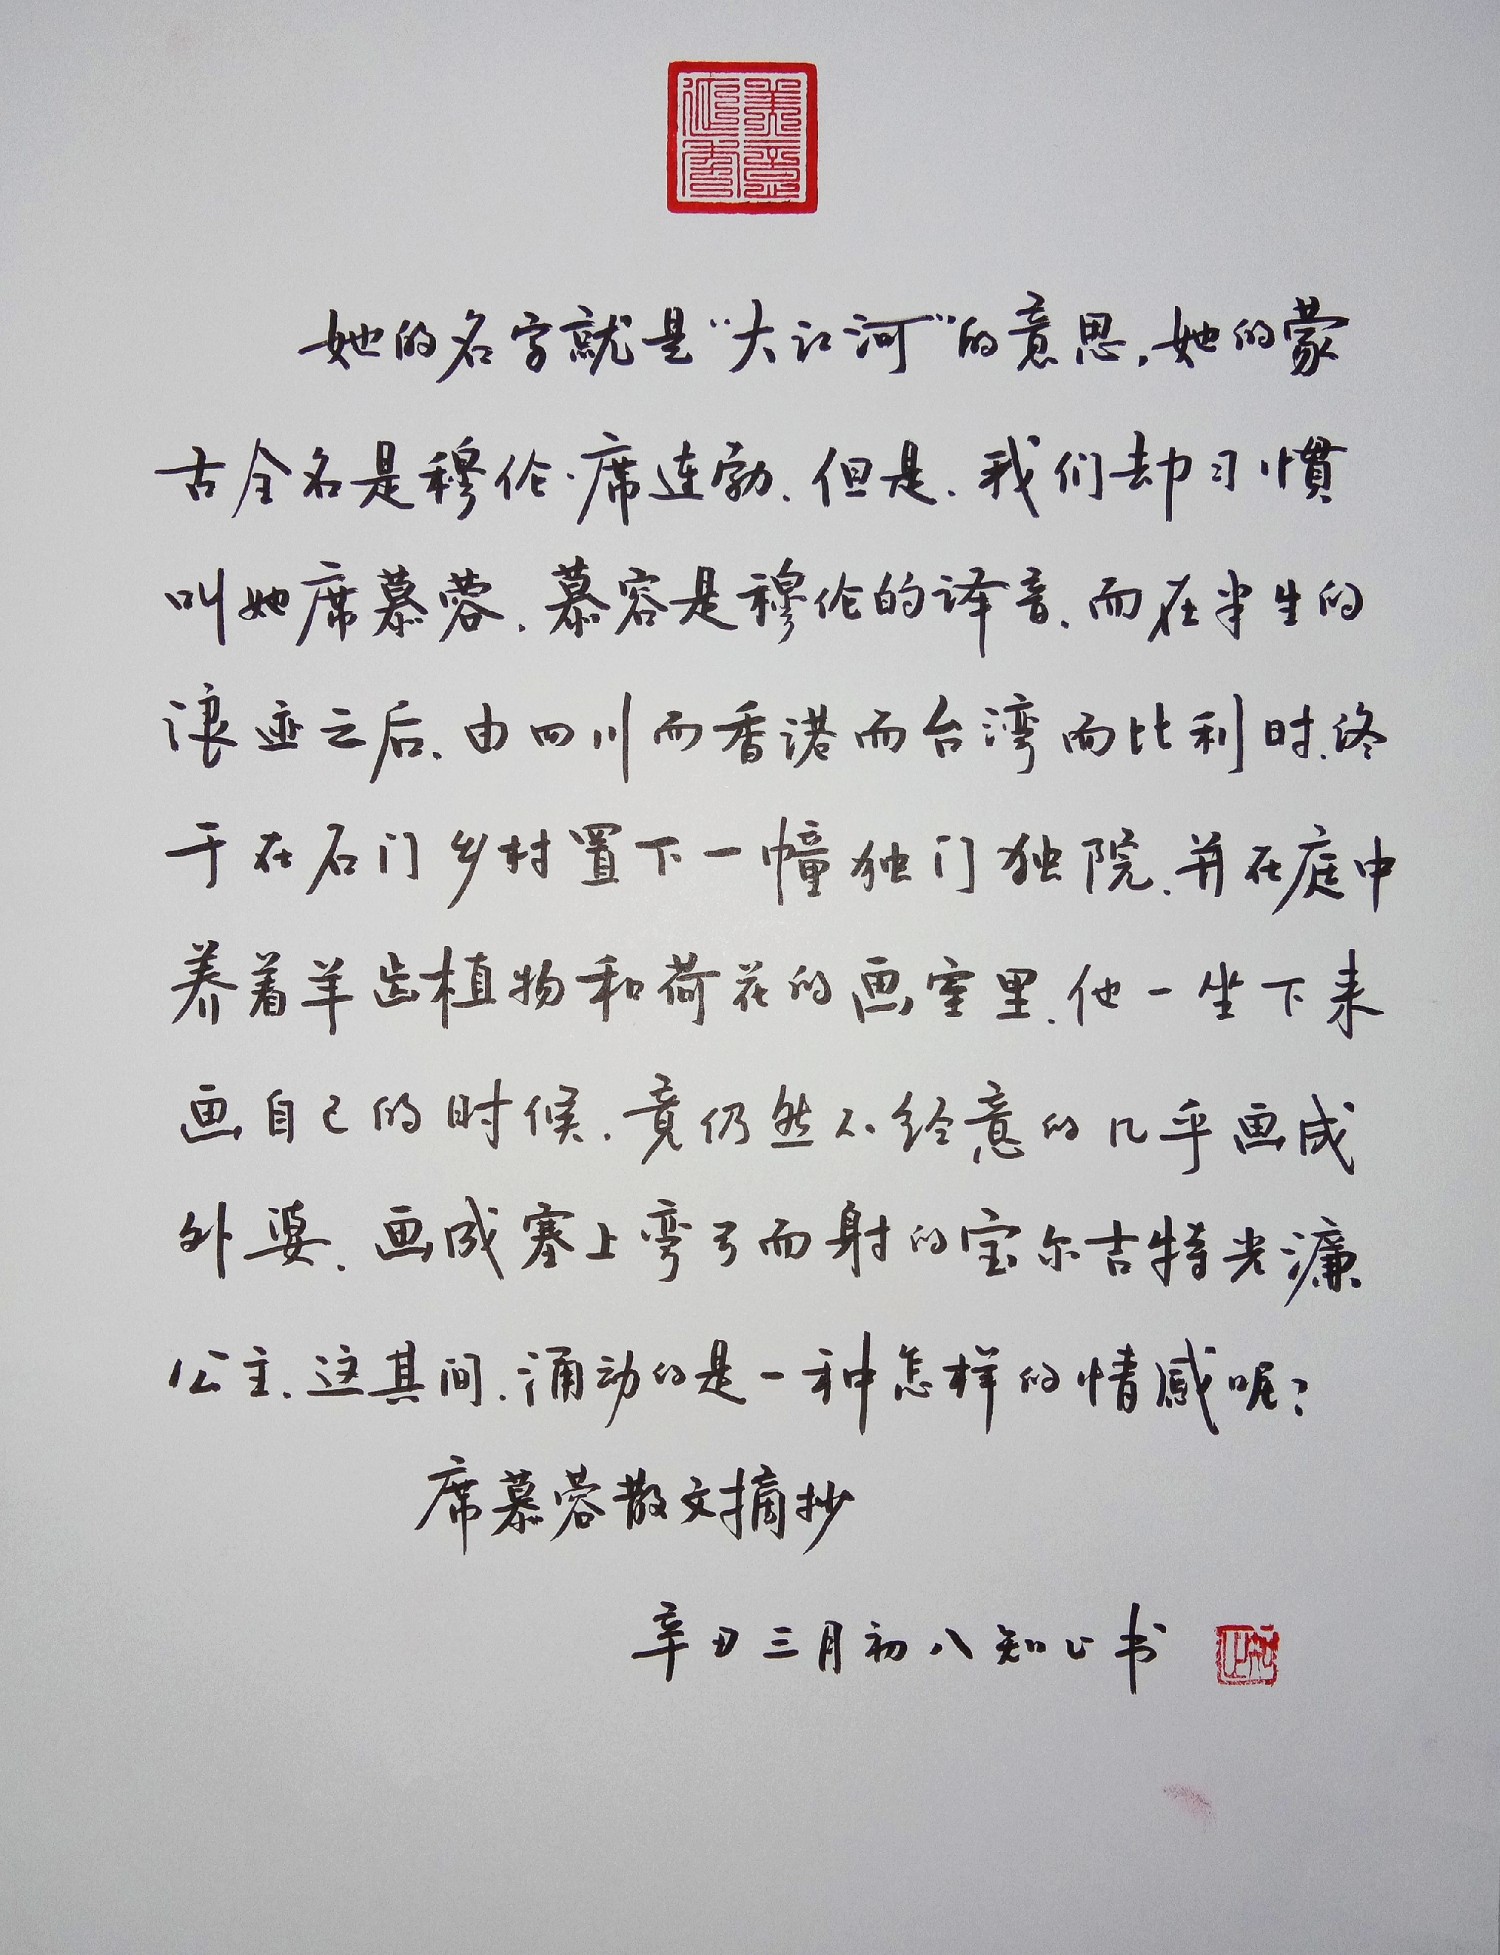 她的名字就是“大江河”的意思,她的蒙
古全名是穆伦·席连勃.但是.我们却习惯
叫她席慕蓉.慕容是穆伦的译音.而在半生的
浪迹之后.由四川而香港而台湾而比利时.终
于在石门乡村置下一幢独门独院.并在庭中
养着羊齿植物和荷花的画室里.他一坐下来
画自己的时候.竟仍然不经意的几乎画成
外婆.画成塞上弯弓而射的宝尔吉特光濂
公主.这其间.涌动的是一种怎样的情感呢?
席慕蓉散文摘抄
辛丑三月初八知止书
知止